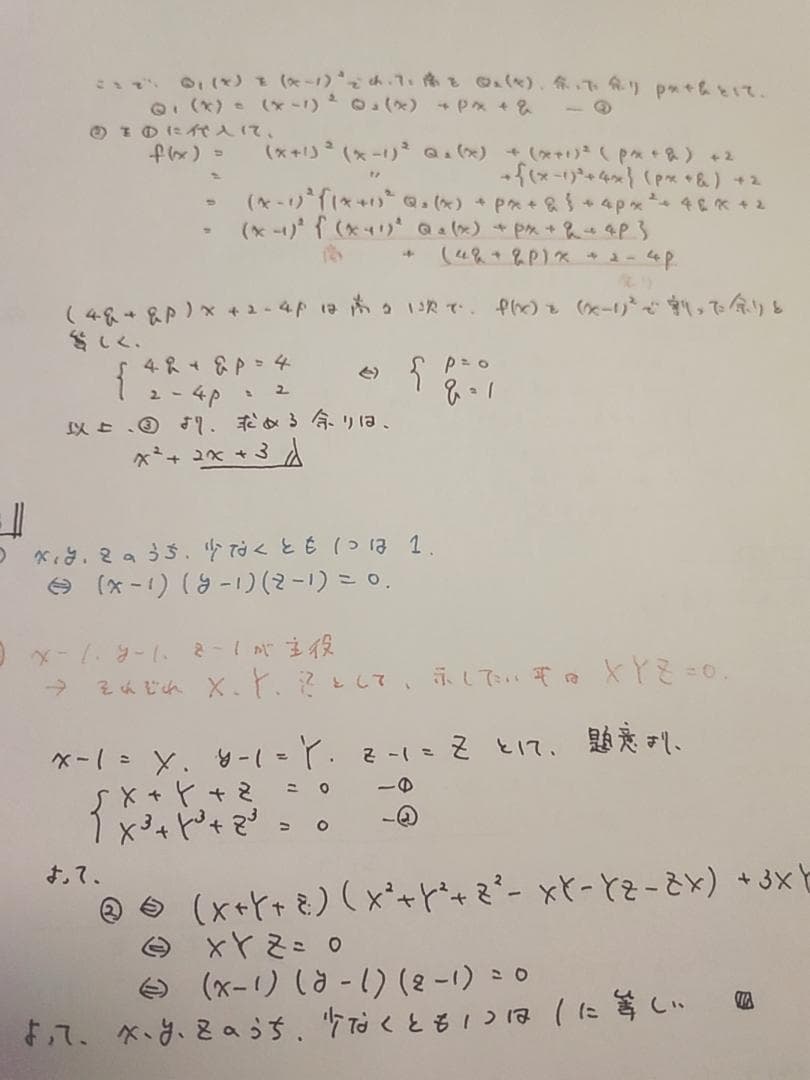 ここで、Q₁(x)を(x-1)²でわった商をQ₂(x)、余りpx+qとして、
Q₁(x) = (x-1)² Q₂(x) + px + q ―③
③を①に代入して、
f(x) = (x+1)²(x-1)² Q₂(x) + (x+1)²(px+q) + 2
= 〃 + {(x-1)²+4x}(px+q) + 2
= (x-1)²{(x+1)² Q₂(x) + px + q} + 4px² + 4qx + 2
= (x-1)²{(x+1)² Q₂(x) + px + q + 4p}
商 + (4q+8p)x + 2 - 4p
余り
(4q+8p)x + 2 - 4p は高々1次で、f(x)を(x-1)²で割った余りと
等しく、
{ 4q + 8p = 4 ⇔ { p = 0
2 - 4p = 2 q = 1
以上、③より、求める余りは、
x² + 2x + 3
x,y,zのうち、少なくとも1つは1.
⇔ (x-1)(y-1)(z-1) = 0.
x-1, y-1, z-1が主役
→ それぞれX、Y、Zとして、示したい事は XYZ=0.
x-1=X, y-1=Y, z-1=Z として、題意より、
{ X+Y+Z = 0 ―①
X³+Y³+Z³ = 0 ―②
よって、
② ⇔ (X+Y+Z)(X²+Y²+Z²-XY-YZ-ZX) + 3XY
⇔ XYZ = 0
⇔ (x-1)(y-1)(z-1) = 0
よって、x、y、zのうち、少なくとも1つは1に等しい